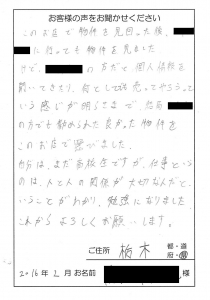 お客様の声をお聞かせください
このお店で物件を見回った後、
に行っても物件を見ました
の方だと個人情報を
聞いてきたり、何としても売ってやろうって
いう感じが明らさまで、結局
の方でも勧められた良かった物件を
このお店で選べました。
自分は、まだ高校生ですが、仕事という
のは、人と人の関係が大切なんだと
いうことがわかり、勉強になりました。
これからよろしくお願いします。
ご住所 栃木 都・道 府・県
2016年2月 お名前 様